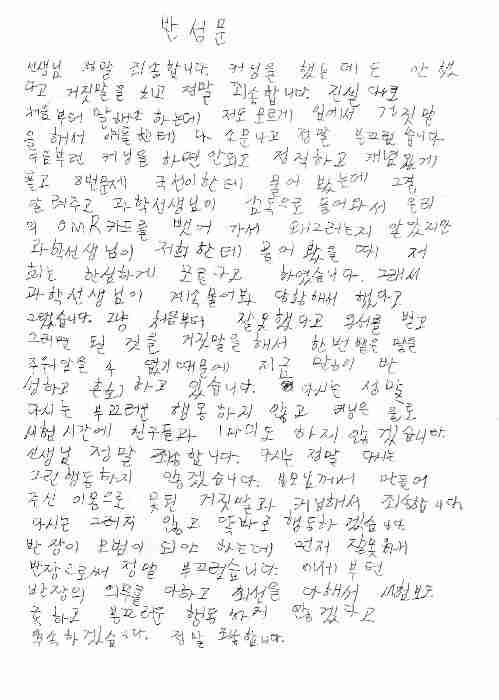 반성문
선생님 정말 죄송합니다. 커닝을 했는데도 안 했
다고 거짓말을 하고 정말 죄송합니다. 진실대로
처음부터 말해야 하는데 저도 모르게 입에서 거짓말
을 해서 애들한테 다 소문나고 정말 부끄럽습니다.
처음부터 커닝을 하면 안되고 정직하고 개념있게
풀고 8번문제 한테 물어 봤는데 그걸
알려주고 과학선생님이 감독으로 들어와서 우리
의 OMR카드를 뺏어 가서 왜그러는지 알았지만
과학선생님이 저희한테 물어 봤을 때 저
희는 한심하게 모른다고 하였습니다. 그래서
과학선생님이 계속물어봐 당황해서 했다고
그랬습니다. 그냥 처음부터 잘못했다고 용서를 빌고
그러면 될 것을 거짓말을 해서 한번 뱉은 말을
주워담을 수 없기 때문에 지금 많이 반
성하고 하고 있습니다. 다시는 정말
다시는 부끄러운 행동하지 않고 커닝은 물론
시험시간에 친구들과 1마디도 하지 않겠습니다.
선생님 정말 죄송합니다. 다시는 정말 다시는
그런행동하지 않겠습니다. 부모님께서 만들어
주신 이름으로 못된 거짓말과 커닝해서 죄송합니다.
다시는 그러지 않고 똑바로 행동하겠습니다
반장이 모범이 되야 하는데 먼저 잘못하여
반장으로써 정말 부끄럽습니다. 이제부터
반장의 의무를 다하고 최선을 다해서 시험보도
록하고 부끄러운 행동하지 않겠다고
약속하겠습니다. 정말 죄송합니다.